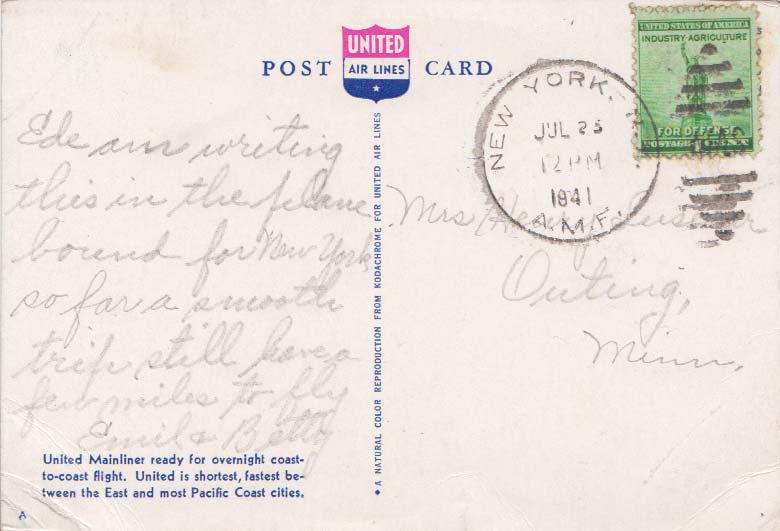 UNITED
AIR LINES
POST CARD
Ede am writing
this in the plane
bound for New York
so far a smooth
trip still have a
few miles to fly
Emil & Betty
United Mainliner ready for overnight coast-
to-coast flight. United is shortest, fastest be-
tween the East and most Pacific Coast cities.
A
A NATURAL COLOR REPRODUCTION FROM KODACHROME FOR UNITED AIR LINES
NEW YORK, N.
JUL 25
12 PM
1941
A.M.F.
UNITED STATES OF AMERICA
INDUSTRY·AGRICULTURE
FOR DEFENSE
POSTAGE
Mrs Henry
Outing,
Minn.